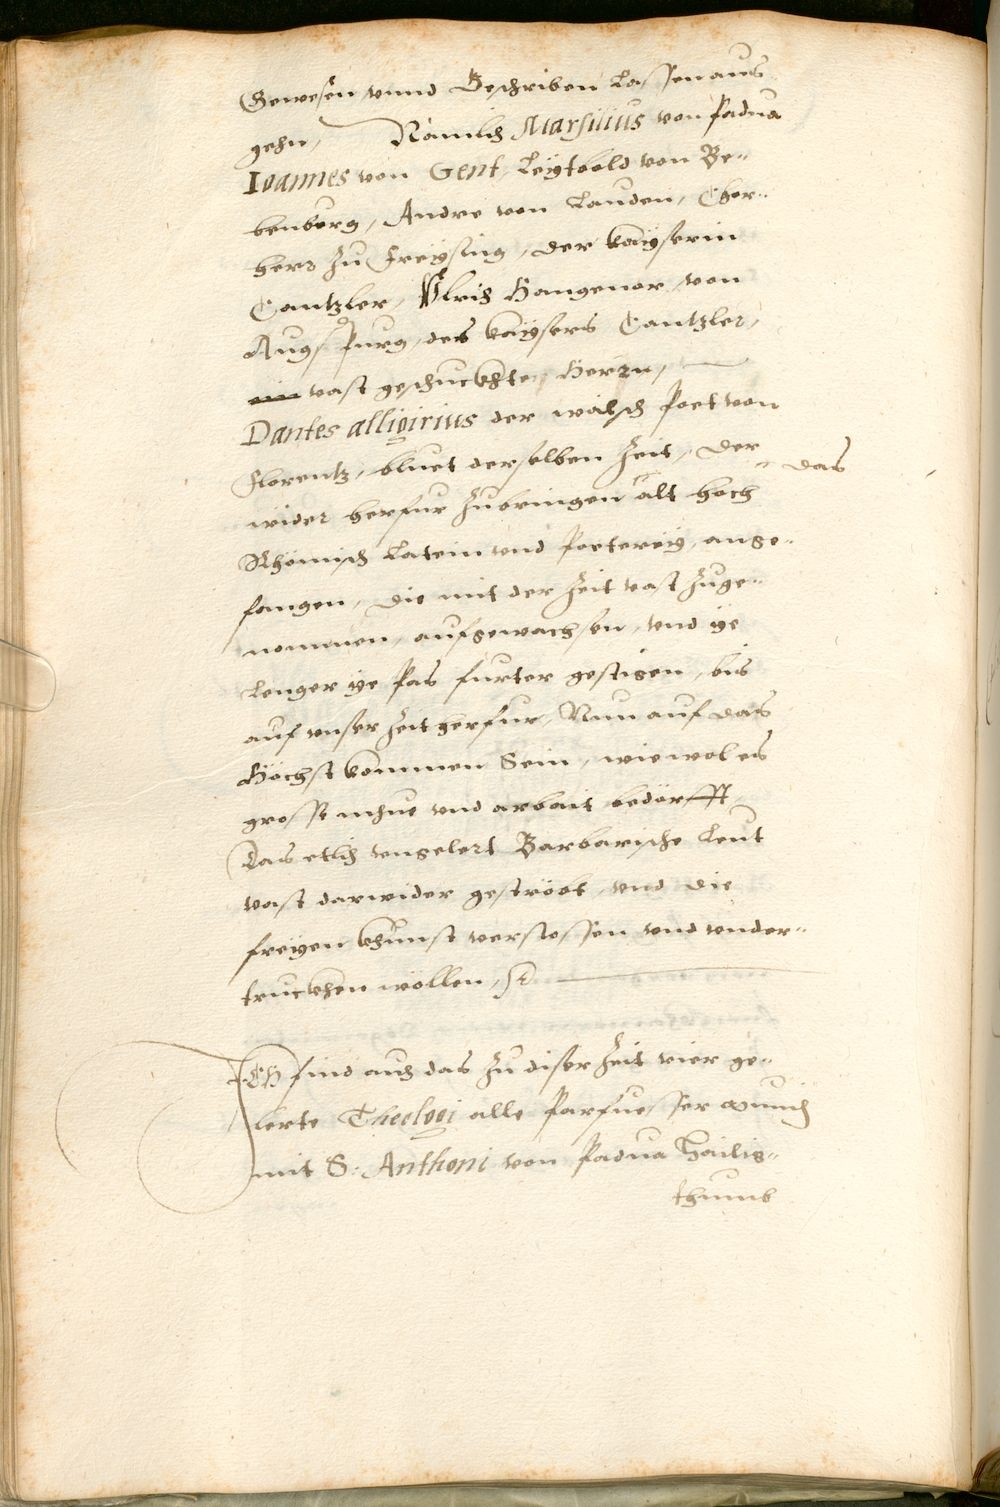 Gewesen vnnd Geschriben Lassen aus
gehn, Nämlich Marsilius von Padua
Ioannes von Gent, Leÿtbold von Be¬
benburg, Andre von Lauden, Chor¬
herr zu Freÿsing, der Kaÿserin
Cantzler, Vlrich Hangenor von
Augspurg, des Kaÿsers Cantzler,
ein vast geschuckhter Herrn,
Dantes alligirius der wälsch Poet von
Florentz, bluet derselben Zeit, Der
wider herfur zubringen das alt hoch
Rhömisch Latein vnd Poetereÿ, ange¬
fangen, Die mit der Zeit vast zuge¬
nommen, aufgewachsen, vnd ÿe
Lenger ÿe Pas furter gestigen, bis
auf vnser Zeit herfur, Nun auf das
Höchst kommen Sein, wiewol es
grosse mhue vnd arbait bedörfft,
Das etlich vngelert Barbarische Leut
vast darwider geströbt, vnd die
freÿen Khunst verstossen vnd vnder¬
truckhen wöllen,
ICH find auch das zu diser Zeit vier ge¬
lerte Theologi alle Parfuesser Munich
mit S: Anthoni von Padua Hailig¬
thumb